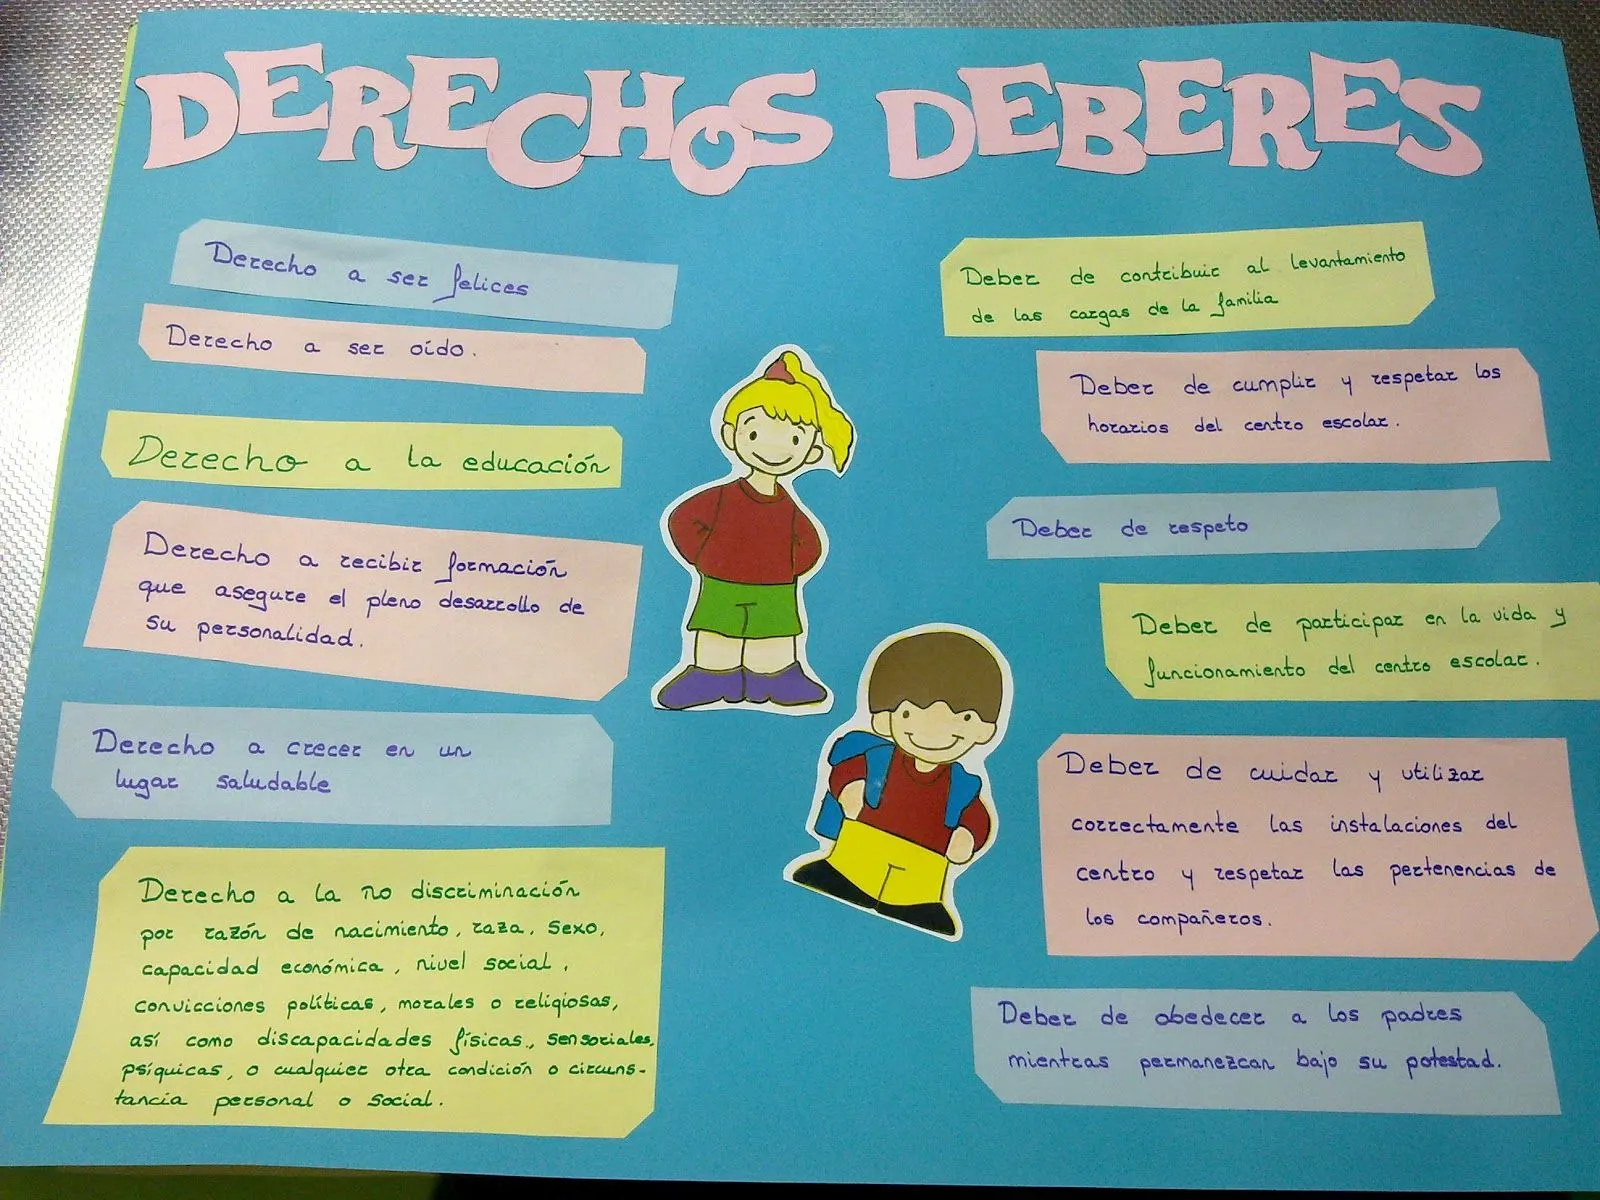 DERECHOS
Derecho a ser felices
Derecho a ser oído.
Derecho a la educación
Derecho a recibir formación
que asegure el pleno desarrollo de
su personalidad.
Derecho a crecer en un
lugar saludable
Derecho a la no discriminación
por razón de nacimiento, raza, sexo,
capacidad económica, nivel social,
convicciones políticas, morales o religiosas,
así como discapacidades físicas, sensoriales,
psíquicas, o cualquier otra condición o circuns-
tancia personal o social.
DEBERES
Deber de contribuir al levantamiento
de las cargas de la familia
Deber de cumplir y respetar los
horarios del centro escolar.
Deber de respeto
Deber de participar en la vida y
funcionamiento del centro escolar.
Deber de cuidar y utilizar
correctamente las instalaciones del
centro y respetar las pertenencias de
los compañeros.
Deber de obedecer a los padres
mientras permanezcan bajo su potestad.